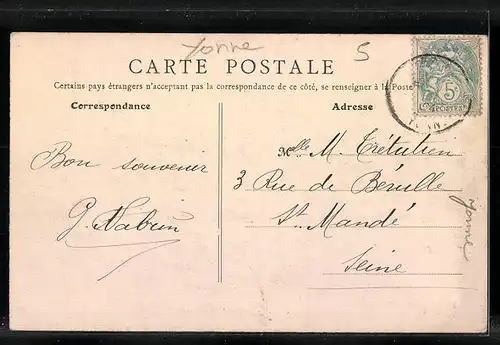 Yonne
5
CARTE POSTALE
Certains pays étrangers n'acceptant pas la correspondance de ce côté, se renseigner à la Poste
Correspondance
Adresse
Bon souvenir
Mlle M.
3 Rue de Bérulle
St. Mandé
Seine
Yonne
5c
POSTES